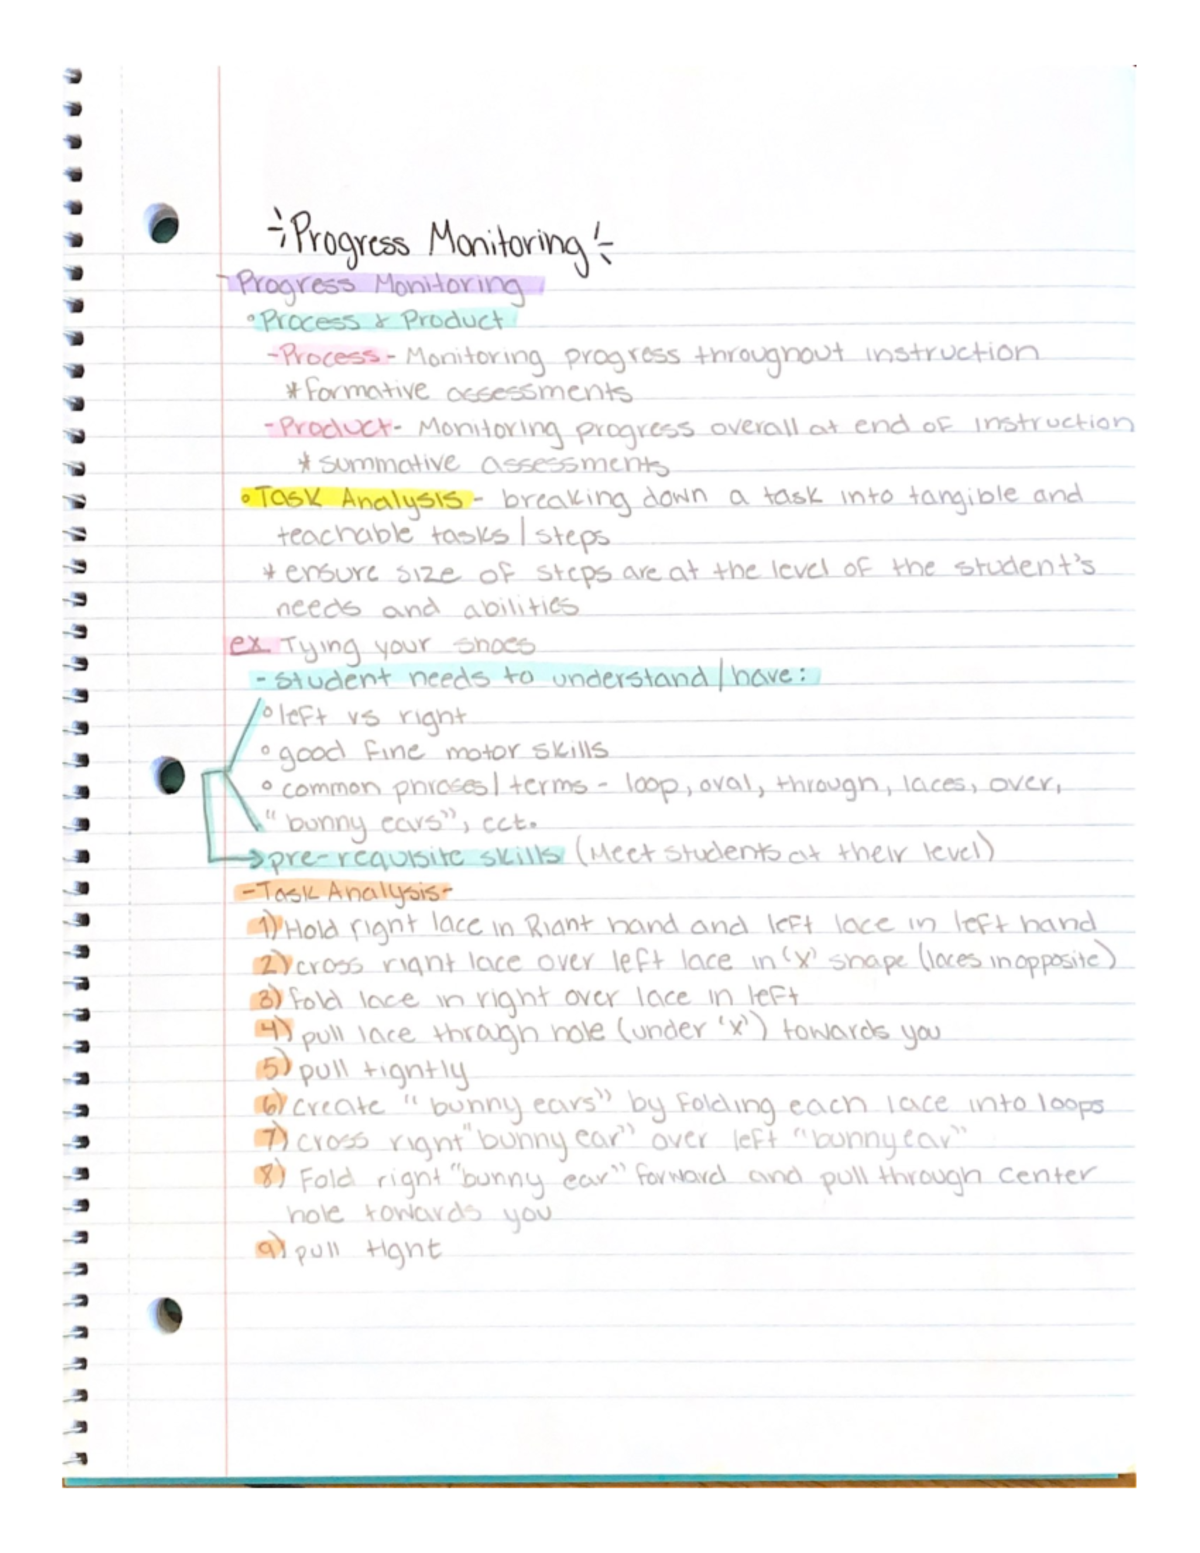 Progress Monitoring
- Progress Monitoring
° Process & Product
- Process - Monitoring progress throughout instruction
* formative assessments
- Product - Monitoring progress overall at end of instruction
* summative assessments
° Task Analysis - breaking down a task into tangible and
teachable tasks / steps
* ensure size of steps are at the level of the student's
needs and abilities
ex Tying your shoes
- student needs to understand / have:
° left vs right
° good fine motor skills
° common phrases / terms - loop, oval, through, laces, over,
"bunny ears", ect.
→ pre-requisite skills (Meet students at their level)
- Task Analysis -
1) Hold right lace in Right hand and left lace in left hand
2) cross right lace over left lace in 'X' shape (laces in opposite)
3) fold lace in right over lace in left
4) pull lace through hole (under 'x') towards you
5) pull tightly
6) create "bunny ears" by folding each lace into loops
7) cross right "bunny ear" over left "bunny ear"
8) Fold right "bunny ear" forward and pull through center
hole towards you
9) pull tight